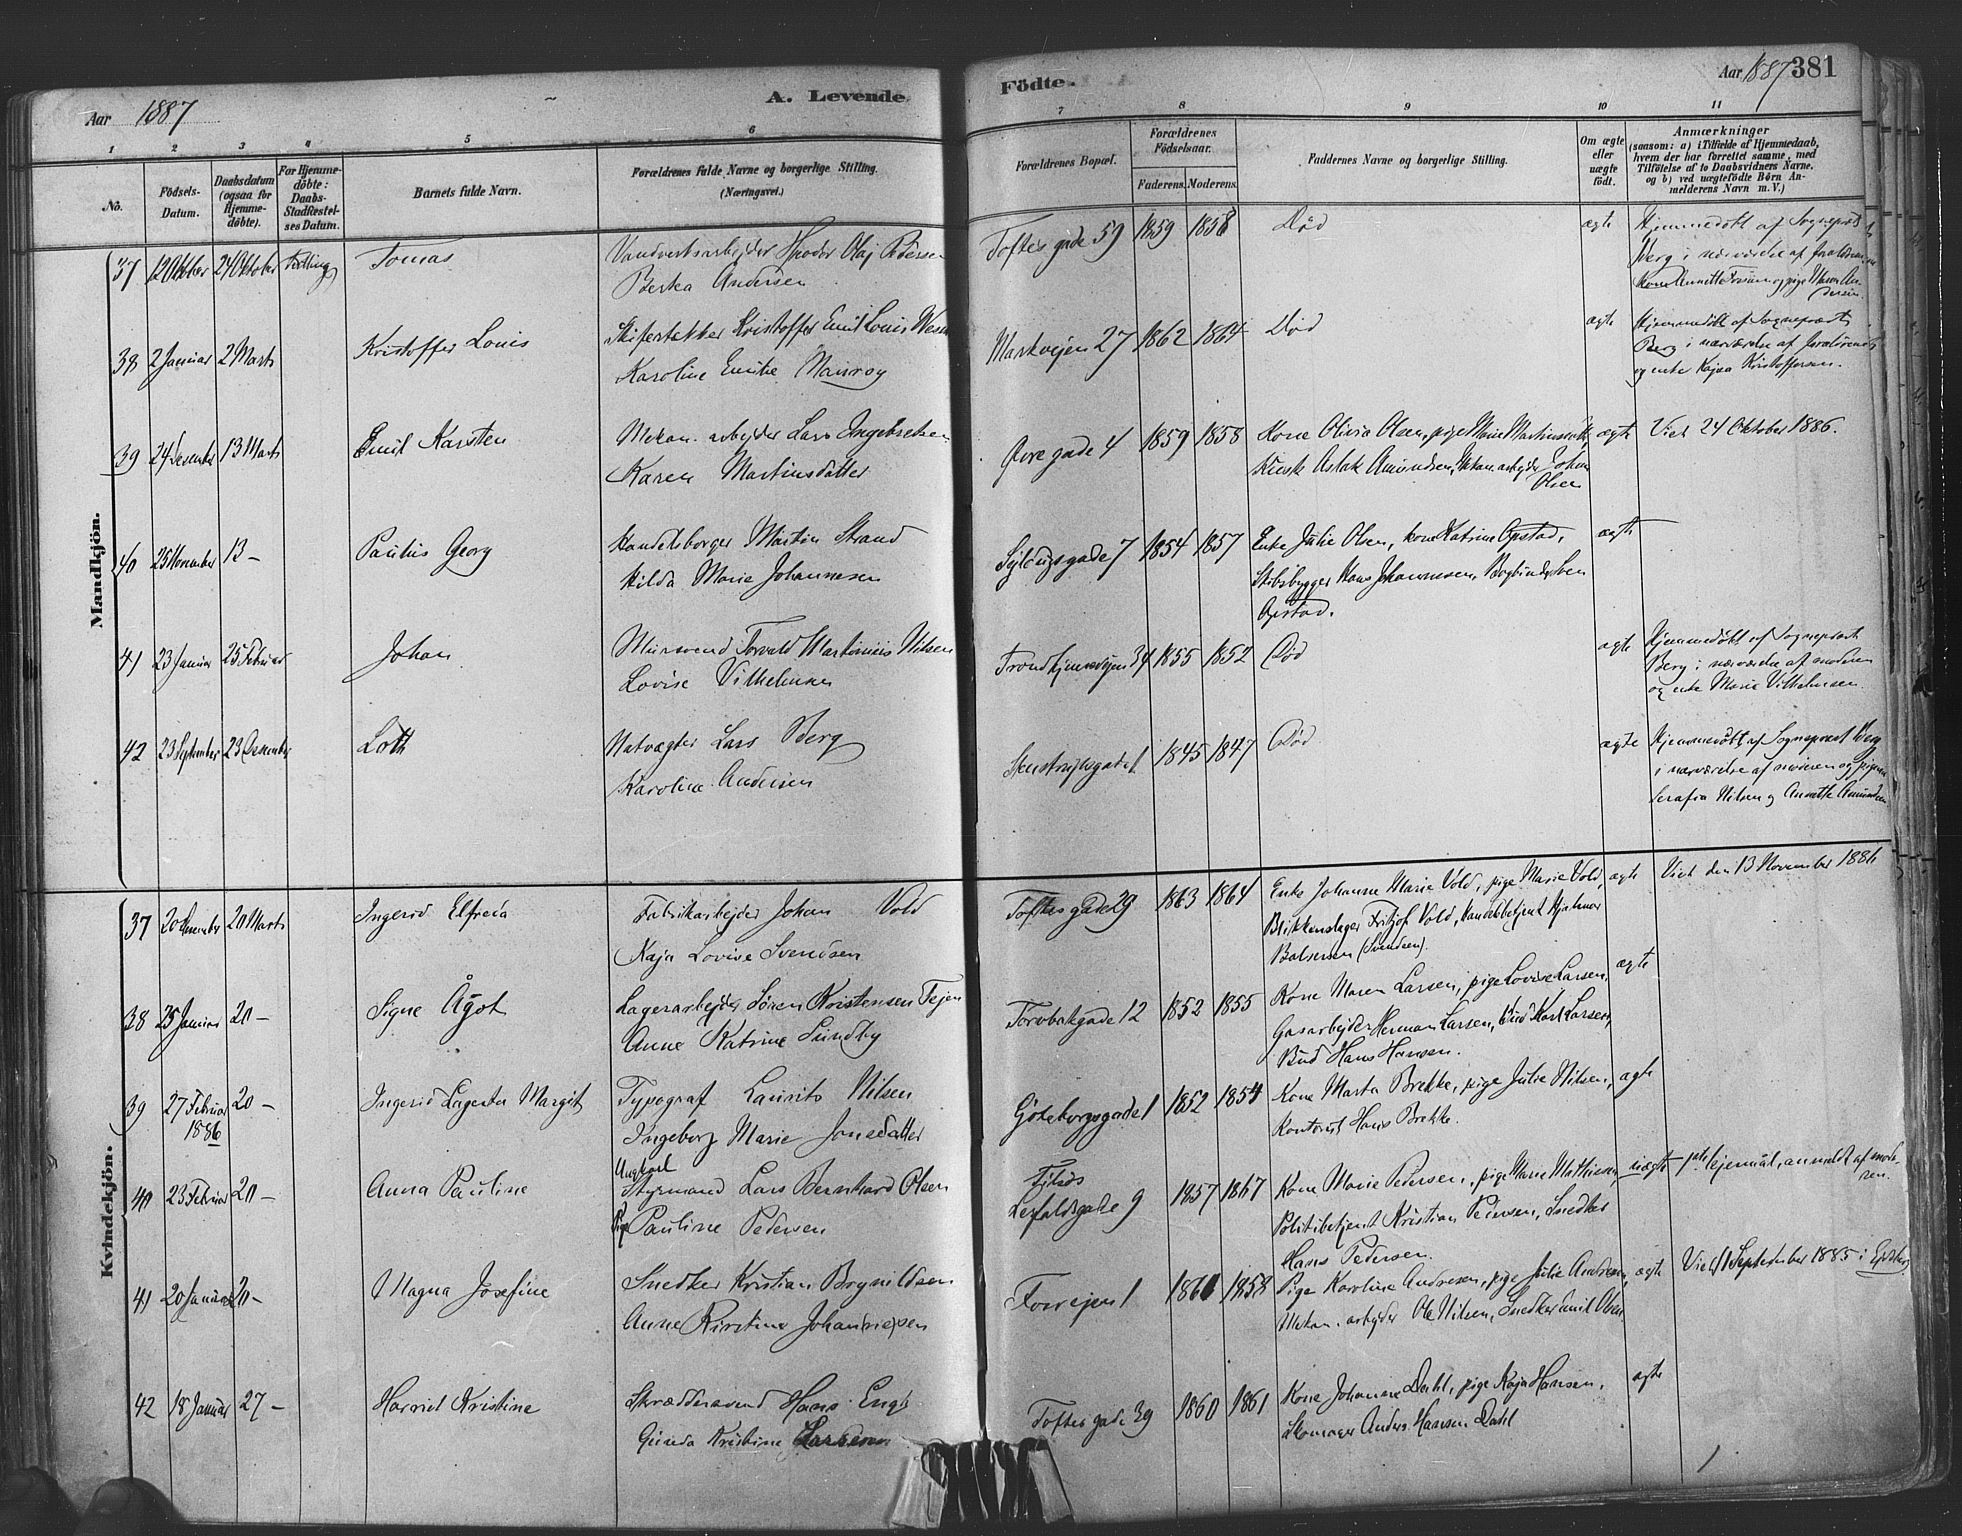 Aar 1887
A. Levende
1 2 3 4 5 6
No.
Födsels-Datum.
Daabsdatum (ogsaa for Hjemmedöbte).
For Hjemmedöbte: Daabs-Stadfæstelses Datum.
Barnets fulde Navn.
Forældrenes fulde Navne og borgerlige Stilling. (Næringsvei.)
Mandkjön.
37 12 Oktober 24 Oktober Tvilling Tomas
Olaf Pedersen
Berta Andersen
38 2 Januar 2 Marts Kristoffer Louis Kristoffer Emil Louis
Karoline Emilie
39 24 Desember 13 Marts Emil Karsten Mekan. arbejder Lars Ingebretsen
Karen Martinsdatter
40 25 November 13 — Paulus Georg Handelsborger Martin Strand
Hilda Marie Johannesen
41 23 Januar 25 Februar Johan Mursvend Torvald Martinius Nilsen
Lovise Vilhelmsen
42 23 September 23 Desember Loth Natvægter Lars Berg
Karoline Andersen
Kvindekjön.
37 20 Desember 20 Marts Ingerid Elfreda Fabrikarbejder Johan Vold
Kaja Lovise Svendsen
38 25 Januar 20 — Signe Ågot Lagerarbejder Sören Kristensen Tejen
Anne Katrine Sundby
39 27 Februar 1886 20 — Ingerid Lagerta Margit Typograf Laurits Nilsen
Ingeborg Marie Jonsdatter
40 23 Februar 20 — Anna Pauline Ungkarl
Styrmand Lars Bernhard Olsen
Pige Pauline Pedersen
41 20 Januar 20 — Magna Josefine Snedker Kristian Brynildsen
Anne Kirstine Johannesen
42 18 Januar 27 — Harriet Kristine Skræddersvend Hans Engh
Gunda Kristine Larsen
Födte.
Aar 1887 381
7 8 9 10 11
Forældrenes Bopæl.
Forældrenes Födselsaar.
Faderens. Moderens.
Faddernes Navne og borgerlige Stilling.
Om ægte eller uægte födt.
Anmærkninger
(saasom: a) i Tilfælde af Hjemmedaab, hvem der har forrettet samme, med Tilföielse af to Daabsvidners Navne, og b) ved uægtefödte Börn Anmelderens Navn m. V.)
Toftes gade 59 1859 1858 Död ægte Hjemmedöbt af Sogneprest
Berg i nærværelse af forældrene
Kone Annette
Markvejen 27 1862 1864 Död ægte Hjemmedöbt af Sogneprest
Berg i nærværelse af forældrene
og enke Kajsa Kristoffersen.
Övre gade 4 1859 1858 Kone Olivia Olsen, pige Marie Martinsdatter, ægte Viet 24 Oktober 1886.
Kusk Aslak Amundsen, Mekan. arbejder Johan
Olsen
7 1854 1857 Enke Julie Olsen, kone Katrine Opstad, ægte
Skibsbygger Hans Johannesen, Bogbinder Sven
Opstad.
Trondhjemsvejen 34 1855 1852 Död ægte Hjemmedöbt af Sogneprest
Berg i nærværelse af moderen
og enke Marie Vilhelmsen.
1 1845 1847 Död ægte Hjemmedöbt af Sogneprest Berg
i nærværelse af moderen og pigerne
Serafia Nilsen og Annette Amundsen
Toftes gade 29 1863 1864 Enke Johanne Marie Vold, pige Marie Vold, ægte Viet den 13 November 1886
Blikkenslager Fritjof Vold, Handelsbetjent Hjalmar
(Svendsen).
Torvbakgade 12 1852 1855 Kone Maren Larsen, pige Lovise Larsen, ægte
Gasarbejder Herman Larsen, Bud Karl Larsen,
Bud Hans Hansen.
Göteborgsgade 1 1852 1854 Kone Marta Brekke, pige Julie Nilsen, ægte
Kontorist Hans Brekke.
9 1857 1867 Kone Marie Pedersen, pige Marie Mathiesen, uægte 1ste lejermål, anmeldt af moderen.
Politibetjent Kristian Pedersen, Snedker
Hans Pedersen.
1 1861 1858 Pige Karoline Andresen, pige Julie Andresen, ægte Viet September 1885 i
Mekan. arbejder Ole Nilsen, Snedker Emil Olsen
Toftes gade 39 1860 1861 Kone Johanne Dahl, pige Kaja Hansen, ægte
Skomager Anders Hansen Dahl